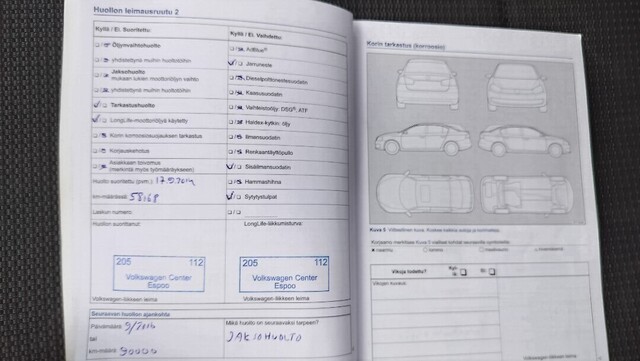 Huollon leimausruutu 2
Kyllä / Ei. Suoritettu:
Öljynvaihtohuolto
yhdistettynä muihin huoltotöihin
Jaksohuolto
mukaan lukien moottoriöljyn vaihto
yhdistettynä muihin huoltotöihin
Tarkastushuolto
LongLife-moottoriöljyä käytetty
Korin korroosiosuojauksen tarkastus
Korjauskehotus
Asiakkaan toivomus
(merkintä myös työmääräykseen)
Huolto suoritettu (pvm.) 17.9.2014
km-määrässä 58168
Laskun numero:
Huollon suorittanut:
205 112
Volkswagen Center
Espoo
Volkswagen-liikkeen leima
Kyllä / Ei. Vaihdettu:
AdBlue®
Jarruneste
Dieselpolttonestesuodatin
Kaasusuodatin
Vaihteistoöljy: DSG®, ATF
Haldex-kytkin: öljy
Ilmansuodatin
Renkaantäyttöpullo
Sisäilmansuodatin
Hammashihna
Sytytystulpat
LongLife-liikkumisturva:
205 112
Volkswagen Center
Espoo
Volkswagen-liikkeen leima
Seuraavan huollon ajankohta
Päivämäärä 9/2016
tai
km-määrä 90000
Mikä huolto on seuraavaksi tarpeen?
JAKSOHUOLTO
Korin tarkastus (korroosio)
Kuva 5
Vikoja todettu?
Kyllä
Ei:
Vikojen kuvaus: